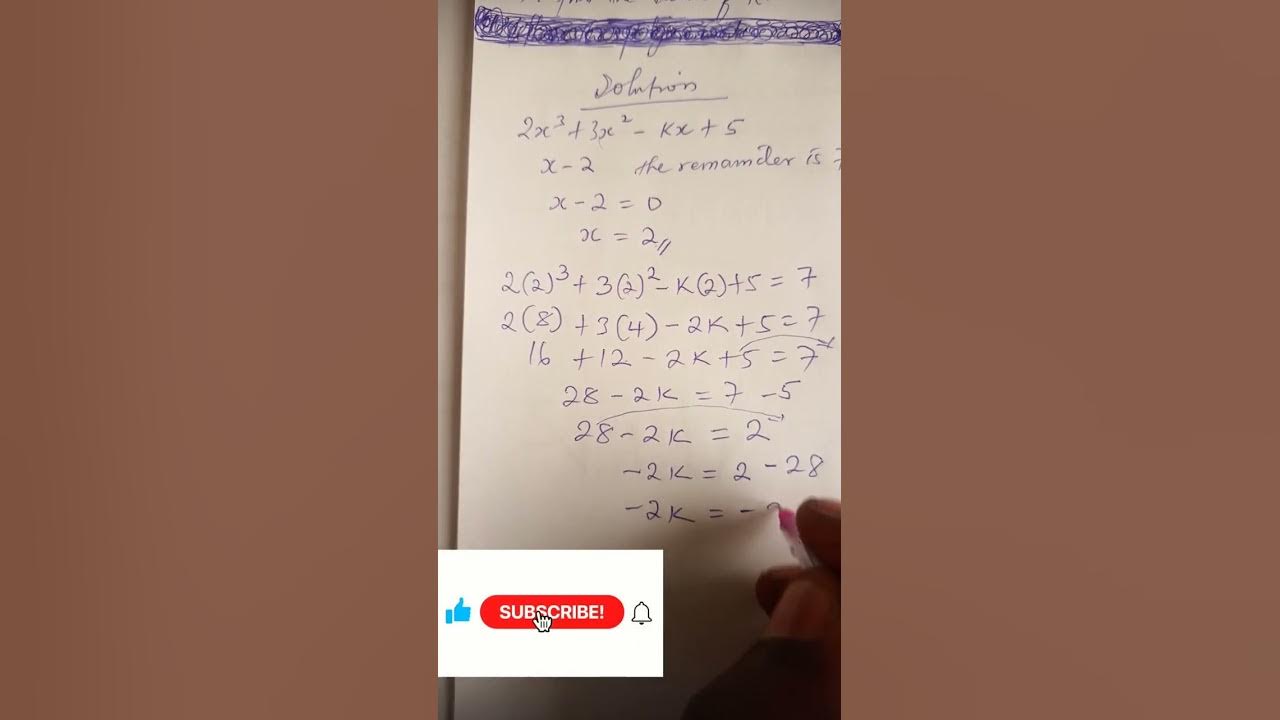 Solution
2x³ + 3x² - Kx + 5
x - 2 the remainder is 7
x - 2 = 0
x = 2//
2(2)³ + 3(2)² - K(2) + 5 = 7
2(8) + 3(4) - 2K + 5 = 7
16 + 12 - 2K + 5 = 7
28 - 2K = 7 - 5
28 - 2K = 2
-2K = 2 - 28
-2K = -
SUBSCRIBE!